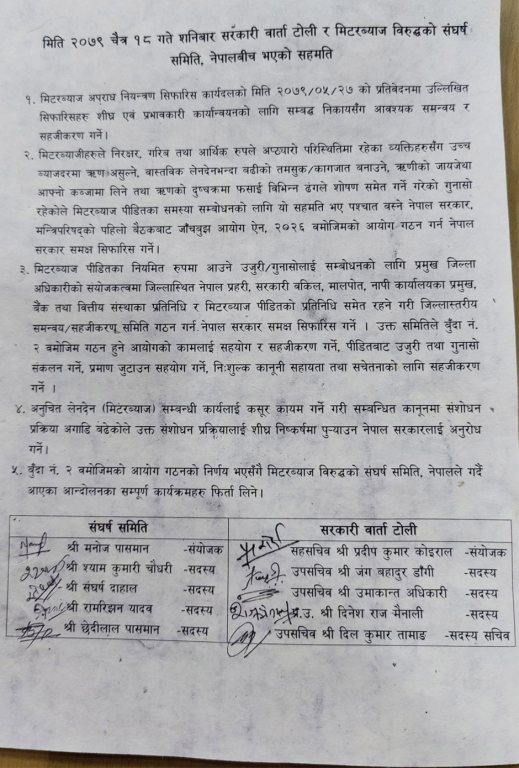 मिति २०७९ चैत्र १८ गते शनिबार सरकारी वार्ता टोली र मिटरब्याज विरुद्धको संघर्ष
समिति, नेपालबीच भएको सहमति
१. मिटरब्याज अपराध नियन्त्रण सिफारिस कार्यदलको मिति २०७९/०५/२७ को प्रतिवेदनमा उल्लिखित
सिफारिसहरु शीघ्र एवं प्रभावकारी कार्यान्वयनको लागि सम्बद्ध निकायसँग आवश्यक समन्वय र
सहजीकरण गर्ने।
२. मिटरब्याजीहरुले निरक्षर, गरिब तथा आर्थिक रुपले अप्ठ्यारो परिस्थितिमा रहेका व्यक्तिहरुसँग उच्च
ब्याजदरमा ऋण असुल्ने, वास्तविक लेनदेनभन्दा बढीको तमसुक/कागजात बनाउने, ऋणीको जायजेथा
आफ्नो कब्जामा लिने तथा ऋणको दुष्चक्रमा फसाई विभिन्न ढंगले शोषण समेत गर्ने गरेको गुनासो
रहेकोले मिटरब्याज पीडितका समस्या सम्बोधनको लागि यो सहमति भए पश्चात बस्ने नेपाल सरकार,
मन्त्रिपरिषद्को पहिलो बैठकबाट जाँचबुझ आयोग ऐन, २०२६ बमोजिमको आयोग गठन गर्न नेपाल
सरकार समक्ष सिफारिस गर्ने।
३. मिटरब्याज पीडितका नियमित रुपमा आउने उजुरी/गुनासोलाई सम्बोधनको लागि प्रमुख जिल्ला
अधिकारीको संयोजकत्वमा जिल्लास्थित नेपाल प्रहरी, सरकारी वकिल, मालपोत, नापी कार्यालयका प्रमुख,
बैंक तथा वित्तीय संस्थाका प्रतिनिधि र मिटरब्याज पीडितको प्रतिनिधि समेत रहने गरी जिल्लास्तरीय
समन्वय/सहजीकरण समिति गठन गर्न नेपाल सरकार समक्ष सिफारिस गर्ने । उक्त समितिले बुँदा नं.
२ बमोजिम गठन हुने आयोगको कामलाई सहयोग र सहजीकरण गर्ने, पीडितबाट उजुरी तथा गुनासो
संकलन गर्ने, प्रमाण जुटाउन सहयोग गर्ने, निःशुल्क कानूनी सहायता तथा सचेतनाको लागि सहजीकरण
गर्ने ।
४. अनुचित लेनदेन (मिटरब्याज) सम्बन्धी कार्यलाई कसूर कायम गर्ने गरी सम्बन्धित कानूनमा संशोधन
प्रक्रिया अगाडि बढेकोले उक्त संशोधन प्रक्रियालाई शीघ्र निष्कर्षमा पुर्‍याउन नेपाल सरकारलाई अनुरोध
गर्ने।
५. बुँदा नं. २ बमोजिमको आयोग गठनको निर्णय भएसँगै मिटरब्याज विरुद्धको संघर्ष समिति, नेपालले गर्दै
आएका आन्दोलनका सम्पूर्ण कार्यक्रमहरु फिर्ता लिने।
संघर्ष समिति
श्री मनोज पासमान -संयोजक
श्री श्याम कुमारी चौधरी -सदस्य
श्री संघर्ष दाहाल -सदस्य
श्री रामरिझन यादव -सदस्य
श्री छेदीलाल पासमान -सदस्य
सरकारी वार्ता टोली
सहसचिव श्री प्रदीप कुमार कोइराला -संयोजक
उपसचिव श्री जंग बहादुर डाँगी -सदस्य
उपसचिव श्री उमाकान्त अधिकारी -सदस्य
प्र.उ. श्री दिनेश राज मैनाली -सदस्य
उपसचिव श्री दिल कुमार तामाङ -सदस्य सचिव